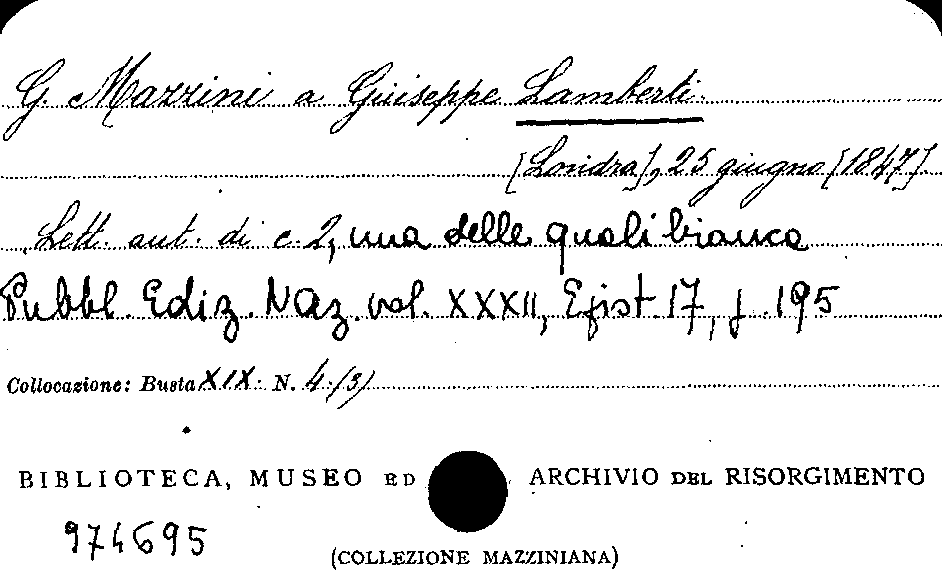 G. Mazzini a Giuseppe Lamberti.
[Londra], 25 giugno [1847].
Lett. aut. di c. 2, una delle quali bianca
Pubbl. Ediz. Naz. vol. XXXII, Epist. 17, p. 195
Collocazione: Busta XIX. N. 4/3)
BIBLIOTECA, MUSEO ED ARCHIVIO DEL RISORGIMENTO
974695
(COLLEZIONE MAZZINIANA)